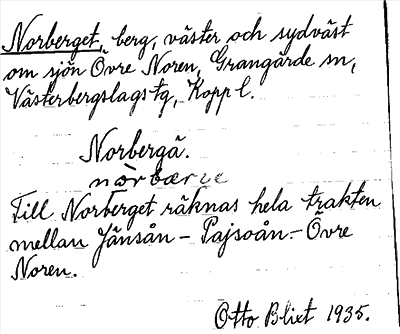 Norberget, berg, väster och sydväst
om sjön Övre Noren, Grangärde sn,
Västerbergslags tg, Kopp l.
Norbergä.
Till Norberget räknas hela trakten
mellan Jänsån - Pajsoån - Övre
Noren.
Otto Blixt 1935.